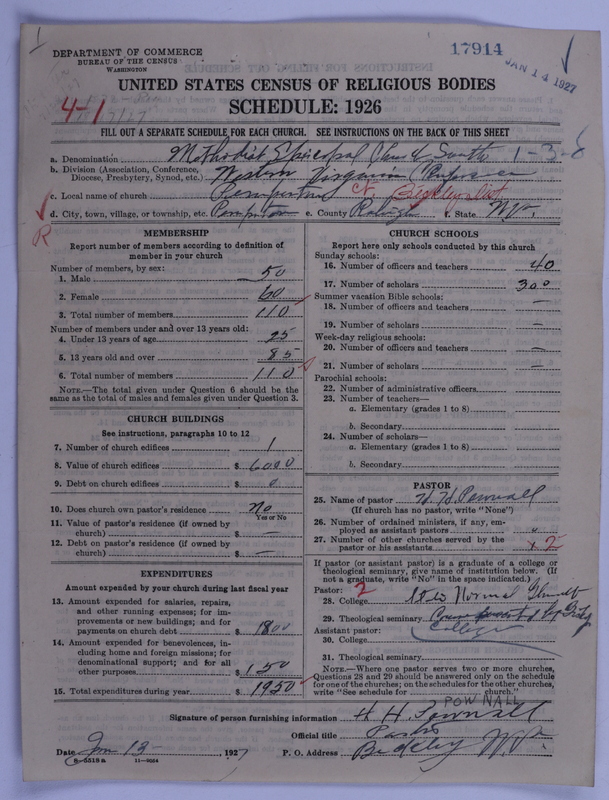 17914
JAN 14 1927
DEPARTMENT OF COMMERCE
BUREAU OF THE CENSUS
WASHINGTON
UNITED STATES CENSUS OF RELIGIOUS BODIES
SCHEDULE: 1926
4-1
FILL OUT A SEPARATE SCHEDULE FOR EACH CHURCH. SEE INSTRUCTIONS ON THE BACK OF THIS SHEET
a. Denomination Methodist Episcopal Church South 1-3-8
b. Division (Association, Conference, Diocese, Presbytery, Synod, etc.) Western Virginia Conference
c. Local name of church Pemperton
d. City, town, village, or township, etc. Pemperton e. County Raleigh f. State W.Va.
R
MEMBERSHIP
Report number of members according to definition of member in your church
Number of members, by sex:
1. Male 50
2. Female 60
3. Total number of members 110
Number of members under and over 13 years old:
4. Under 13 years of age 25
5. 13 years old and over 85
6. Total number of members 110
NOTE.—The total given under Question 6 should be the same as the total of males and females given under Question 3.
CHURCH BUILDINGS
See instructions, paragraphs 10 to 12
7. Number of church edifices 1
8. Value of church edifices $ 6000
9. Debt on church edifices $ 0
10. Does church own pastor's residence No
Yes or No
11. Value of pastor's residence (if owned by church) $ —
12. Debt on pastor's residence (if owned by church) $ —
EXPENDITURES
Amount expended by your church during last fiscal year
13. Amount expended for salaries, repairs, and other running expenses; for improvements or new buildings; and for payments on church debt $ 1800
14. Amount expended for benevolences, including home and foreign missions; for denominational support; and for all other purposes $ 150
15. Total expenditures during year $ 1950
CHURCH SCHOOLS
Report here only schools conducted by this church
Sunday schools:
16. Number of officers and teachers 40
17. Number of scholars 300
Summer vacation Bible schools:
18. Number of officers and teachers —
19. Number of scholars —
Week-day religious schools:
20. Number of officers and teachers —
21. Number of scholars —
Parochial schools:
22. Number of administrative officers
23. Number of teachers—
a. Elementary (grades 1 to 8)
b. Secondary
24. Number of scholars—
a. Elementary (grades 1 to 8)
b. Secondary
PASTOR
25. Name of pastor H. H. Pownall
(If church has no pastor, write "None")
26. Number of ordained ministers, if any, employed as assistant pastors
27. Number of other churches served by the pastor or his assistants x 2
If pastor (or assistant pastor) is a graduate of a college or theological seminary, give name of institution below. (If not a graduate, write "No" in the space indicated.)
Pastor: 2
28. College State Normal
29. Theological seminary
Assistant pastor:
30. College
31. Theological seminary
NOTE.—Where one pastor serves two or more churches, Questions 28 and 29 should be answered only on the schedule for one of the churches; on the schedules for the other churches, write "See schedule for church."
POWNALL
Signature of person furnishing information H H Pownall
Official title Pastor
Date Jan 13 1927 P. O. Address Beckley W.Va.
8-5519a 11-9064